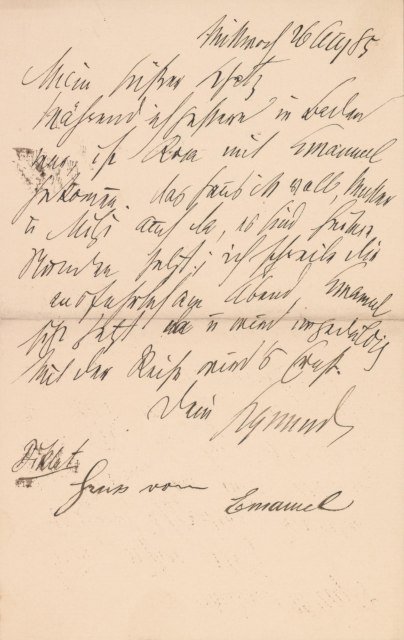 Mittwoch 26 Aug 85
Mein süßer Schatz
Während ich gestern in Baden
war, ist Rosa mit Emanuel
gekommen. das Haus ist voll, Mutter
u Mitzi auch da, es sind
Stunden jetzt; ich schreibe Dir
ausführlich am Abend, Emanuel
ist jetzt da u wird ungeduldig
Mit der Reise wird's Ernst.
Dein Sigmund
Diktat
Gruss von Emanuel